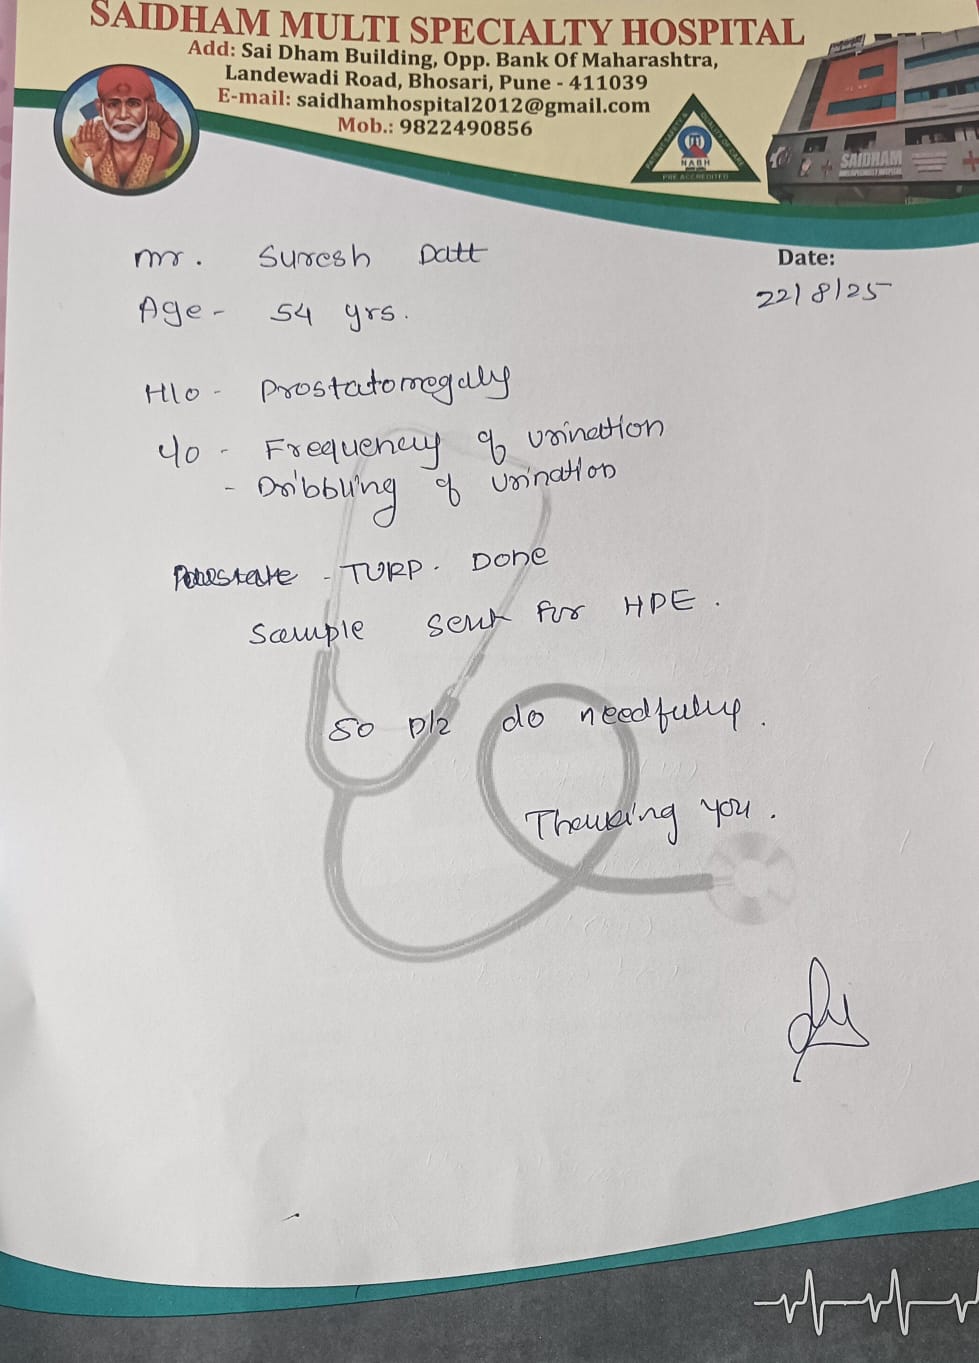 SAIDHAM MULTI SPECIALTY HOSPITAL
Add: Sai Dham Building, Opp. Bank Of Maharashtra,
Landewadi Road, Bhosari, Pune - 411039
E-mail: saidhamhospital2012@gmail.com
Mob.: 9822490856
PATIENT SAFETY & QUALITY OF CARE
NABH
PRE ACCREDITED
SAIDHAM
Mr. Suresh Datt
Date:
22/8/25
Age - 54 yrs.
H/o - Prostatomegaly
c/o - Frequency of urination
- Dribbling of urination
- TURP. Done
Sample sent for HPE.
So plz do needfully.
Thanking you.